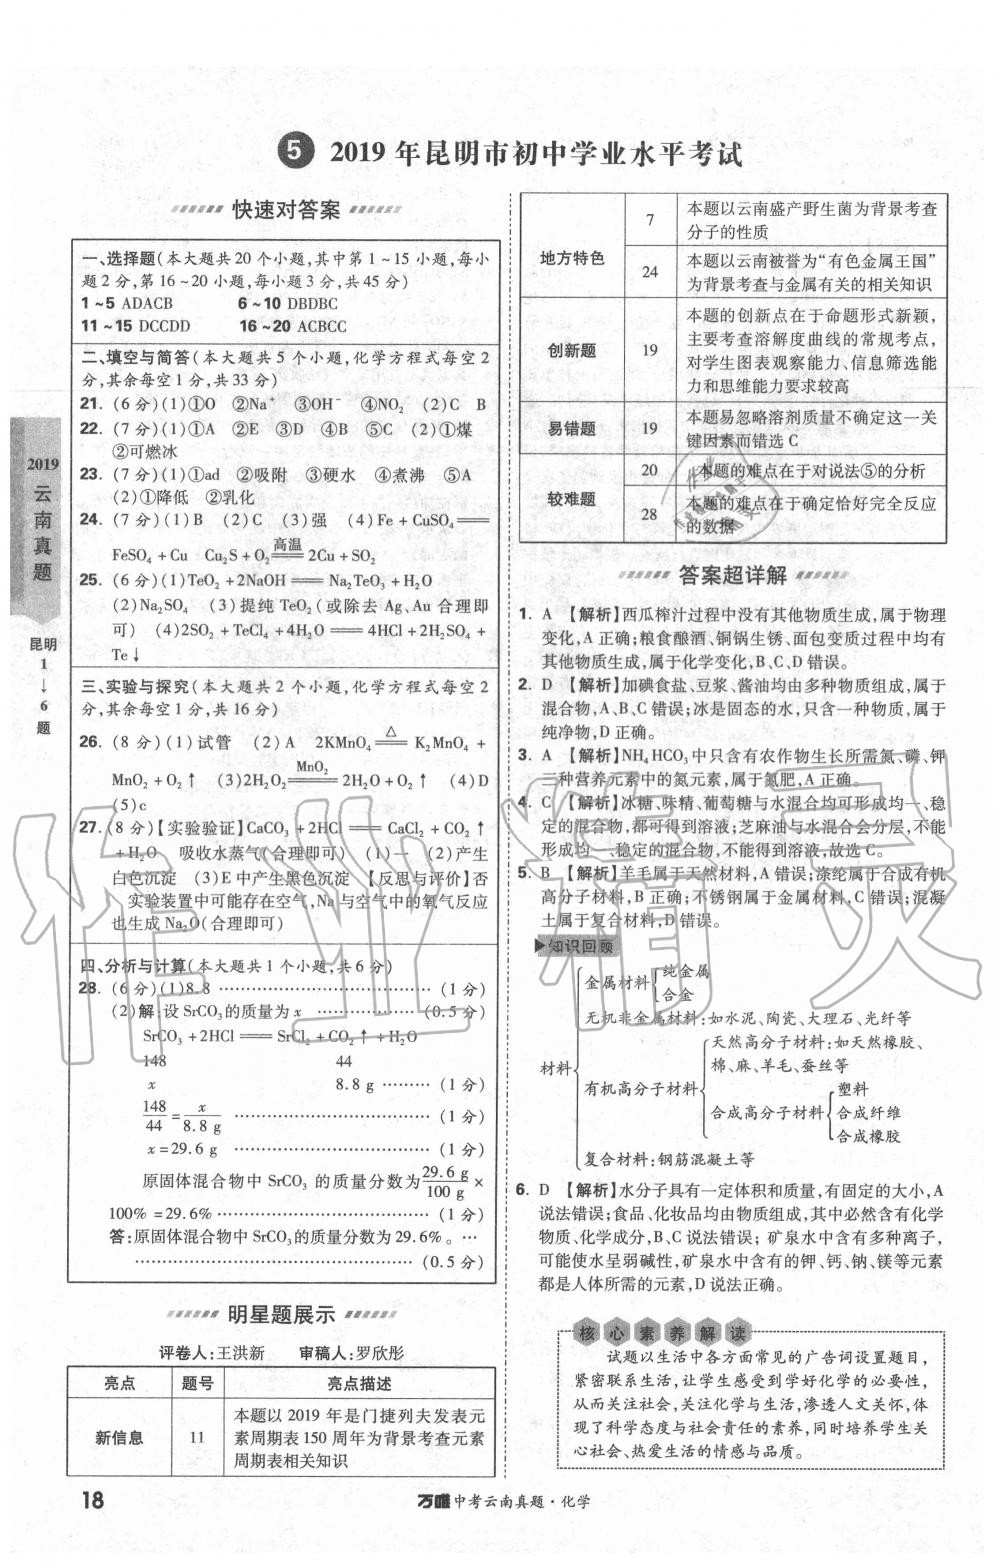 5 2019年昆明市初中学业水平考试
快速对答案
一、选择题(本大题共20个小题,其中第1~15小题,每小
题2分,第16~20小题,每小题3分,共45分)
1~5 ADACB 6~10 DBDBC
11~15 DCCDD 16~20 ACBCC
二、填空与简答(本大题共5个小题,化学方程式每空2
分,其余每空1分,共33分)
21. (6分)(1)①O ②Na⁺ ③OH⁻ ④NO₂ (2)C B
22. (7分)(1)①A ②E ③D ④B ⑤C (2)①煤
②可燃冰
23. (7分)(1)①ad ②吸附 ③硬水 ④煮沸 ⑤A
(2)①降低 ②乳化
24. (7分)(1)B (2)C (3)强 (4)Fe+CuSO₄══
FeSO₄+Cu Cu₂S+O₂ 高温══ 2Cu+SO₂
25. (6分)(1)TeO₂+2NaOH══Na₂TeO₃+H₂O
(2)Na₂SO₄ (3)提纯TeO₂(或除去Ag、Au合理即
可) (4)2SO₂+TeCl₄+4H₂O══4HCl+2H₂SO₄+
Te↓
三、实验与探究(本大题共2个小题,化学方程式每空2
分,其余每空1分,共16分)
26. (8分)(1)试管 (2)A 2KMnO₄ △══ K₂MnO₄+
MnO₂+O₂↑ (3)2H₂O₂ MnO₂══ 2H₂O+O₂↑ (4)D
(5)c
27. (8分)【实验验证】CaCO₃+2HCl══CaCl₂+CO₂↑
+H₂O 吸收水蒸气(合理即可) (1)一 (2)产生
白色沉淀 (3)E中产生黑色沉淀 【反思与评价】否
实验装置中可能存在空气,Na与空气中的氧气反应
也生成Na₂O(合理即可)
四、分析与计算(本大题共1个小题,共6分)
28. (6分)(1)8.8 ……………………………… (1分)
(2)解:设SrCO₃的质量为x ……………… (0.5分)
SrCO₃+2HCl══SrCl₂+CO₂↑+H₂O
148 44
x 8.8 g ……… (1分)
148/44=x/8.8 g ……………………… (1分)
x=29.6 g ……………………… (1分)
原固体混合物中SrCO₃的质量分数为29.6 g/100 g×
100%=29.6% ……………………… (1分)
答:原固体混合物中SrCO₃的质量分数为29.6%。…
……………………………………… (0.5分)
明星题展示
评卷人:王洪新 审稿人:罗欣彤
亮点 题号 亮点描述
新信息 11 本题以2019年是门捷列夫发表元
素周期表150周年为背景考查元素
周期表相关知识
地方特色 7 本题以云南盛产野生菌为背景考查
分子的性质
24 本题以云南被誉为“有色金属王国”
为背景考查与金属有关的相关知识
创新题 19 本题的创新点在于命题形式新颖,
主要考查溶解度曲线的常规考点,
对学生图表观察能力、信息筛选能
力和思维能力要求较高
易错题 19 本题易忽略溶剂质量不确定这一关
键因素而错选C
较难题 20 本题的难点在于对说法⑤的分析
28 本题的难点在于确定恰好完全反应
的数据
答案超详解
1. A 【解析】西瓜榨汁过程中没有其他物质生成,属于物理
变化,A正确;粮食酿酒、铜锅生锈、面包变质过程中均有
其他物质生成,属于化学变化,B、C、D错误。
2. D 【解析】加碘食盐、豆浆、酱油均由多种物质组成,属于
混合物,A、B、C错误;冰是固态的水,只含一种物质,属于
纯净物,D正确。
3. A 【解析】NH₄HCO₃中只含有农作物生长所需氮、磷、钾
三种营养元素中的氮元素,属于氮肥,A正确。
4. C 【解析】冰糖、味精、葡萄糖与水混合均可形成均一、稳
定的混合物,都可得到溶液;芝麻油与水混合会分层,不能
形成均一、稳定的混合物,不能得到溶液,故选C。
5. B 【解析】羊毛属于天然材料,A错误;涤纶属于合成有机
高分子材料,B正确;不锈钢属于金属材料,C错误;混凝
土属于复合材料,D错误。
知识回顾
材料
金属材料 纯金属
合金
无机非金属材料:如水泥、陶瓷、大理石、光纤等
有机高分子材料 天然高分子材料:如天然橡胶、
棉、麻、羊毛、蚕丝等
合成高分子材料 塑料
合成纤维
合成橡胶
复合材料:钢筋混凝土等
6. D 【解析】水分子具有一定体积和质量,有固定的大小,A
说法错误;食品、化妆品均由物质组成,其中必然含有化学
物质、化学成分,B、C说法错误;矿泉水中含有多种离子,
可能使水呈弱碱性,矿泉水中含有的钾、钙、钠、镁等元素
都是人体所需的元素,D说法正确。
核心素养解读
试题以生活中各方面常见的广告词设置题目,
紧密联系生活,让学生感受到学好化学的必要性,
从而关注社会,关注化学与生活,渗透人文关怀,体
现了科学态度与社会责任的素养,同时培养学生关
心社会、热爱生活的情感与品质。
2019
云南真题
昆明
1
↓
6
题
18
万唯中考云南真题·化学
作业精灵